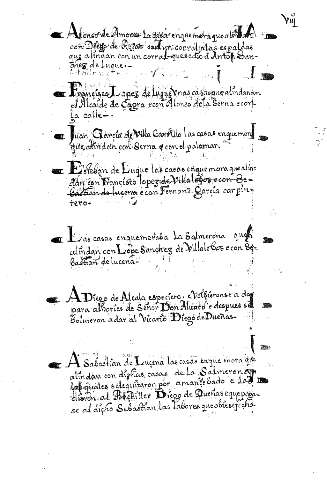 Viij
Alonso de las casas en que mora que alin
con Diego de sus espaldas
que alindan con un corral de Anton San
chez de Luque
Francisco Lopes de Luque unas casas que alindan con
el Alcaide de Cagra e con Alonso de la Serna e con
la calle
Juan Garcia de Villa Castillo las casas en que mora
que alinden con Serna e con el palomar
Esteban de Luque las casas en que mora que alin
dan con Francisco Lopez de Villalobos e con Se
bastian de lucena e con Ferrand Garcia carpin
tero
Las casas en que moraba la Salmerona que
alindan con Lope Sanchez de Villalobos e con Se
bastian de lucena
A Diego de Alcala especiero, e
para alhories de Señor Don Alonso e despues se
bolvieron a dar al Vicario Diego de Dueñas
A Sabastian de Lucena las casas en que mora que
alindan con dichas casas de la Salmeron
las quales se le quitaron por amancebado e las
dieron al Bachiller Diego de Dueñas e que pague
se al dicho Sebastian las labores que obiese fecho